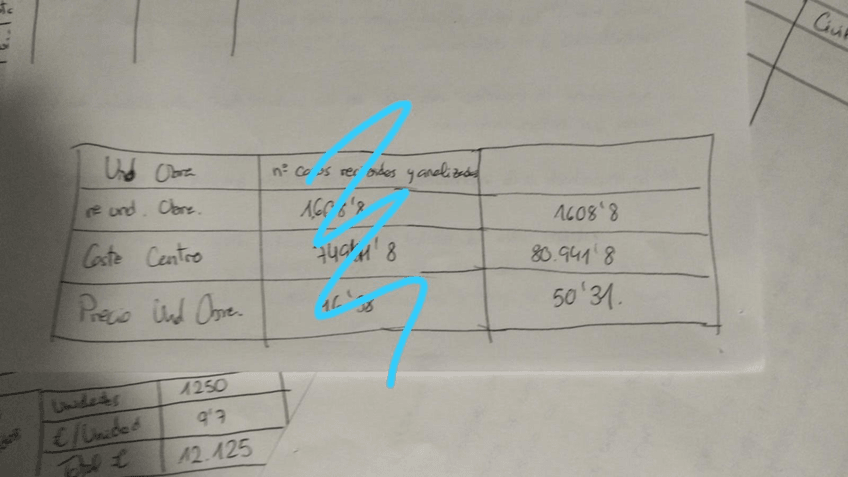 Und Obra nº casos recibidos y analizados
nº und. Obra. 1608'8 1608'8
Coste Centro 80.941'8
Precio Und Obra. 50'31.
Unidades 1250
€/Unidad 9'7
Total € 12.125